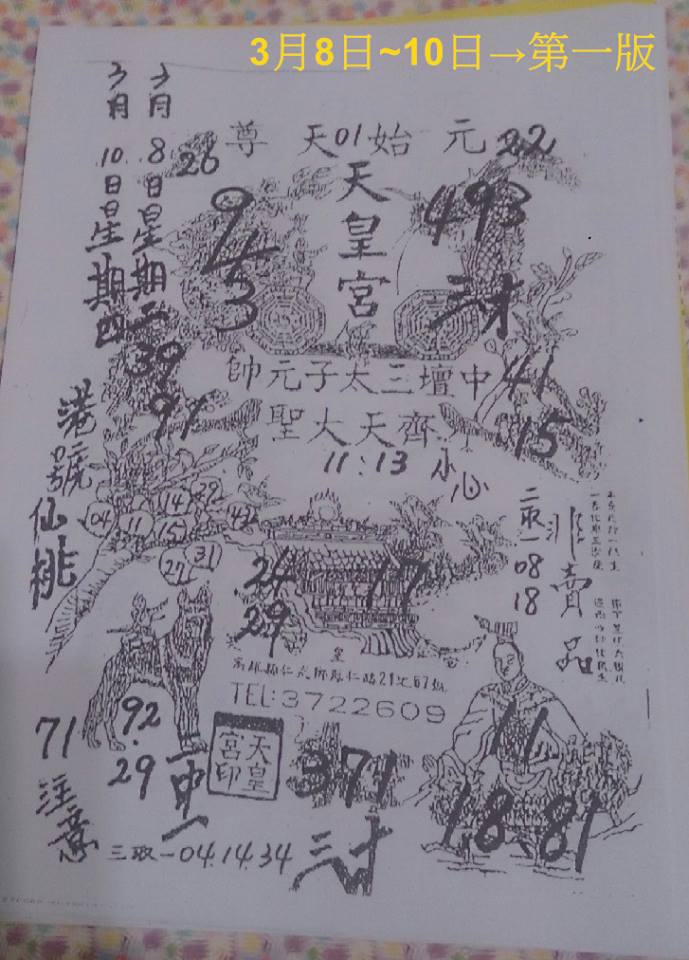 3月8日~10日→第一版
3月8日星期二
3月10日星期四
26
元始天尊
01
22
天皇宮
9/4 3
493
三才
39
91
中壇三太子元帥
41
齊天大聖
15
11:13
小心
港號仙桃
04
11
14
15
29
42
27
31
24
29
17
二取一
08
18
非賣品
TEL:3722609
71
注意
92.29
二中一
天皇宮印
371
三才
11
18.81
三取一04.14.34